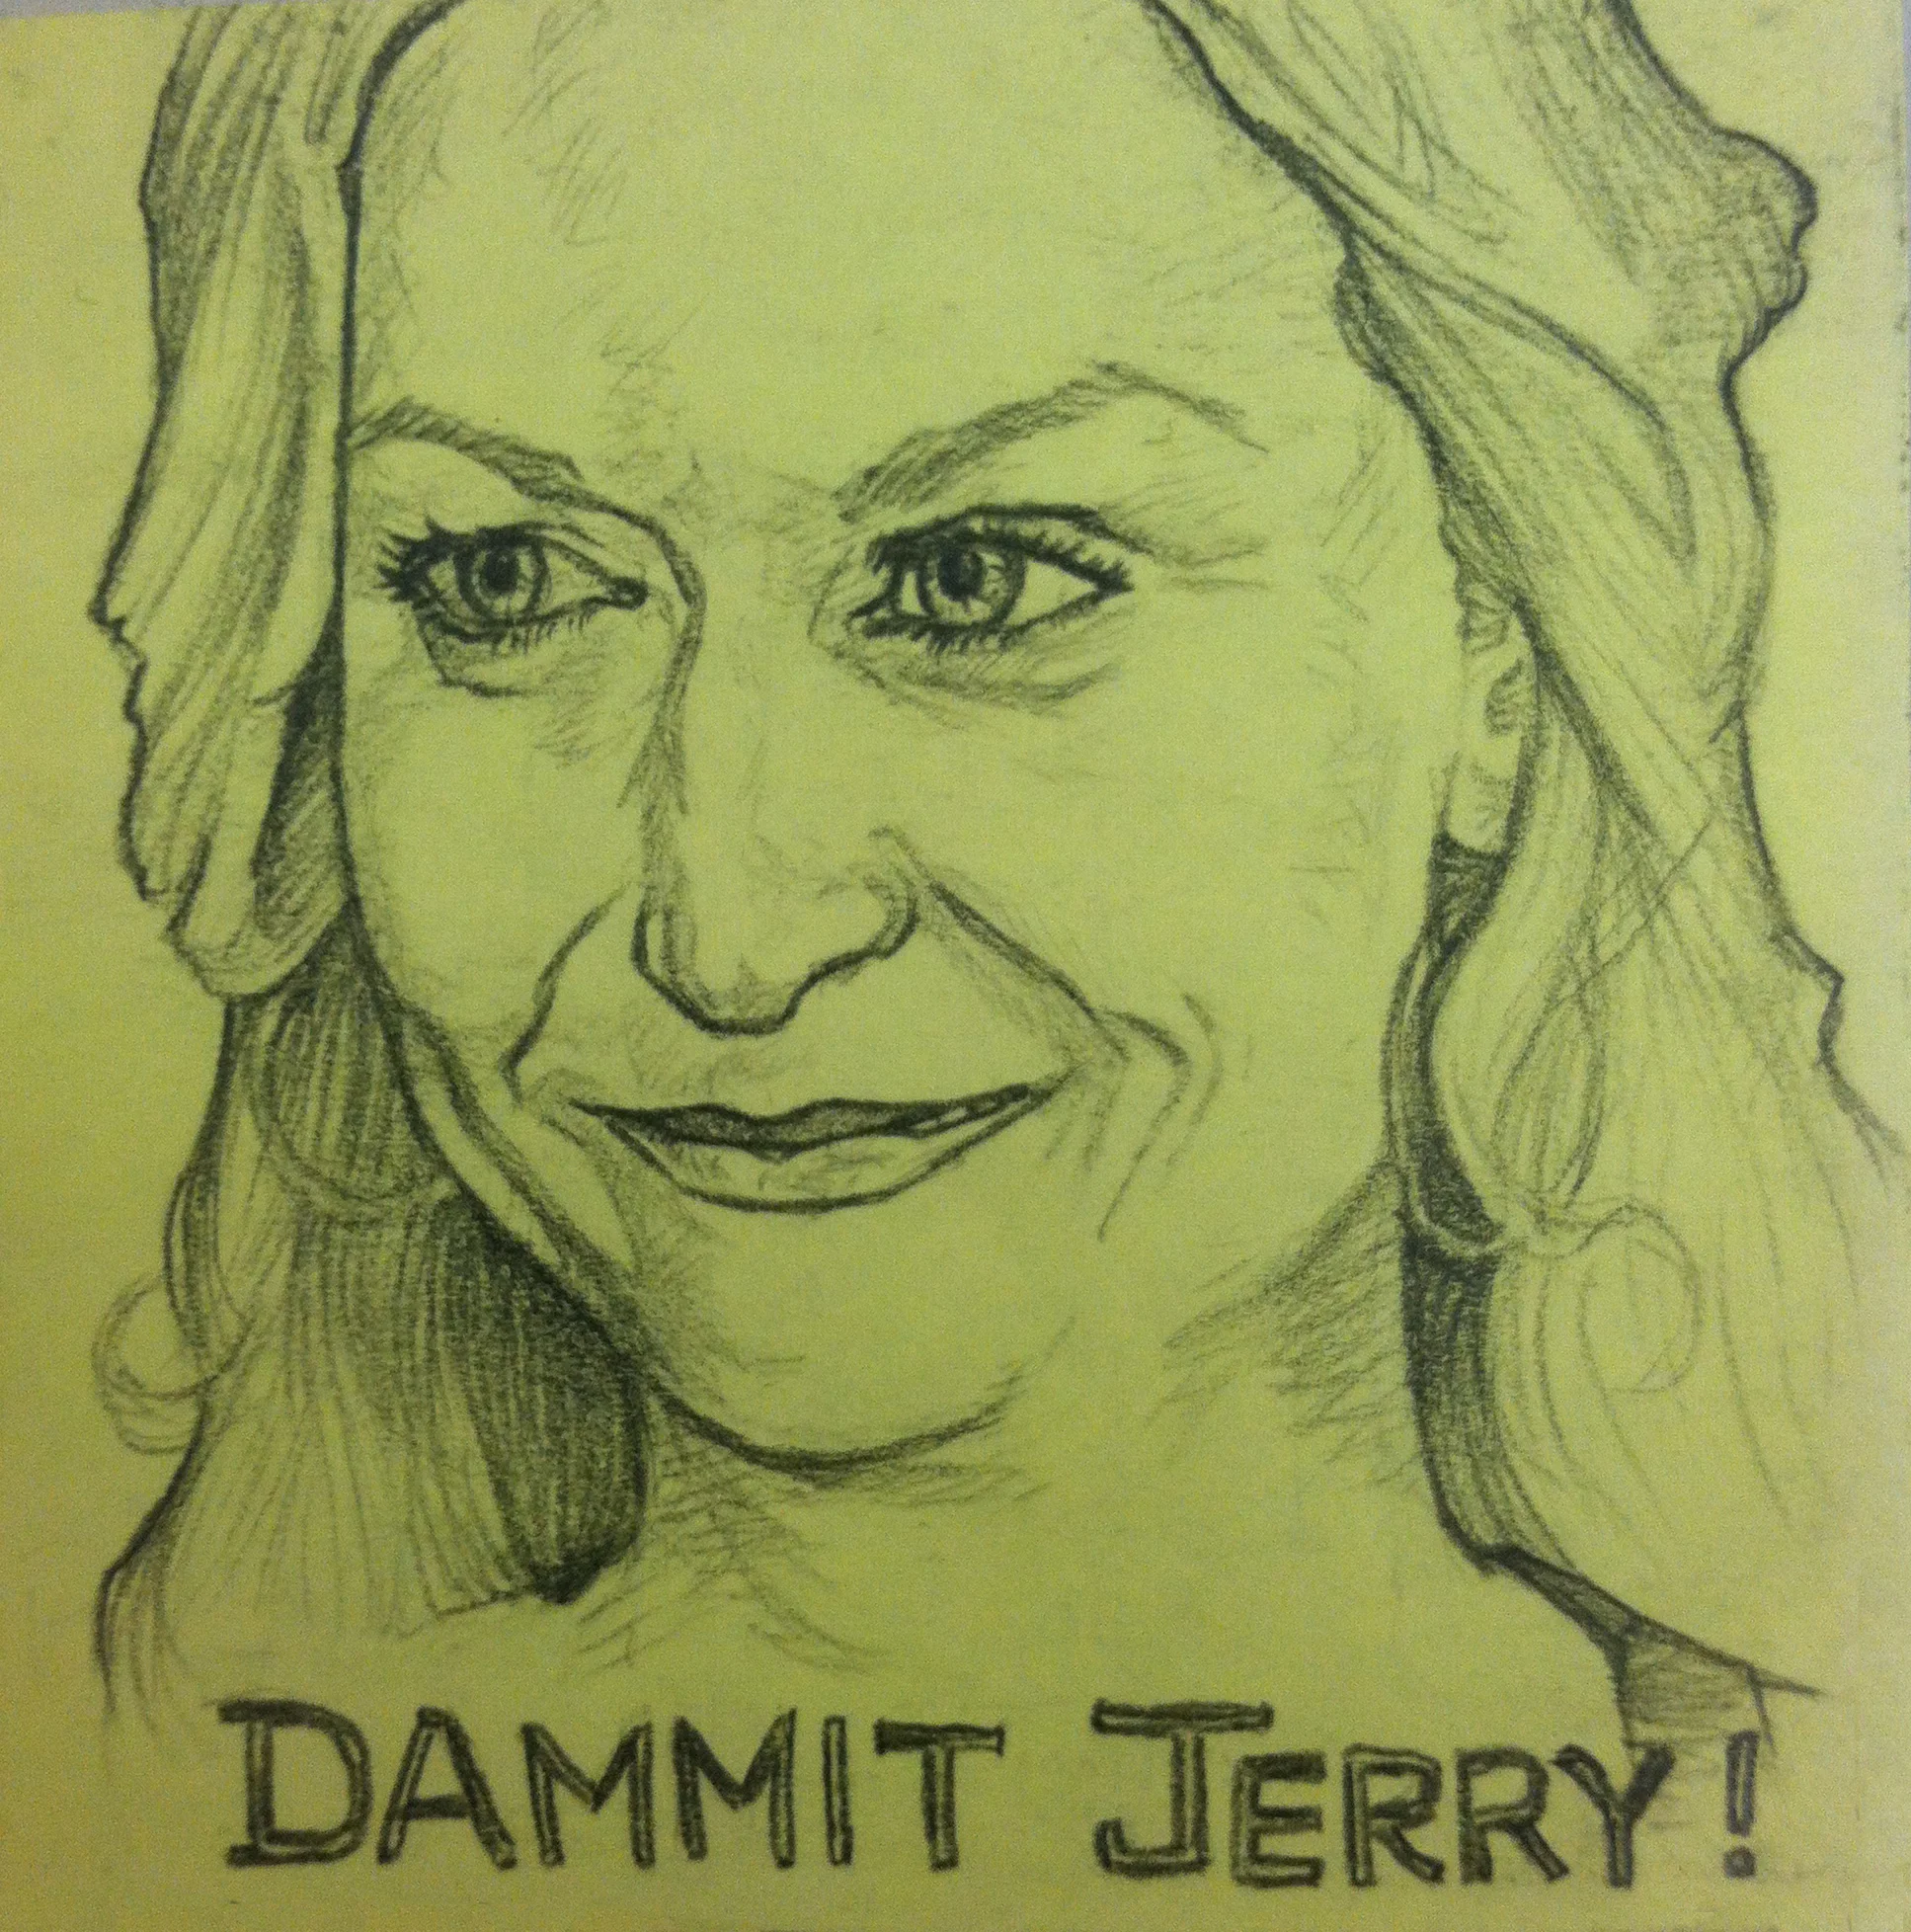 DAMMIT JERRY!